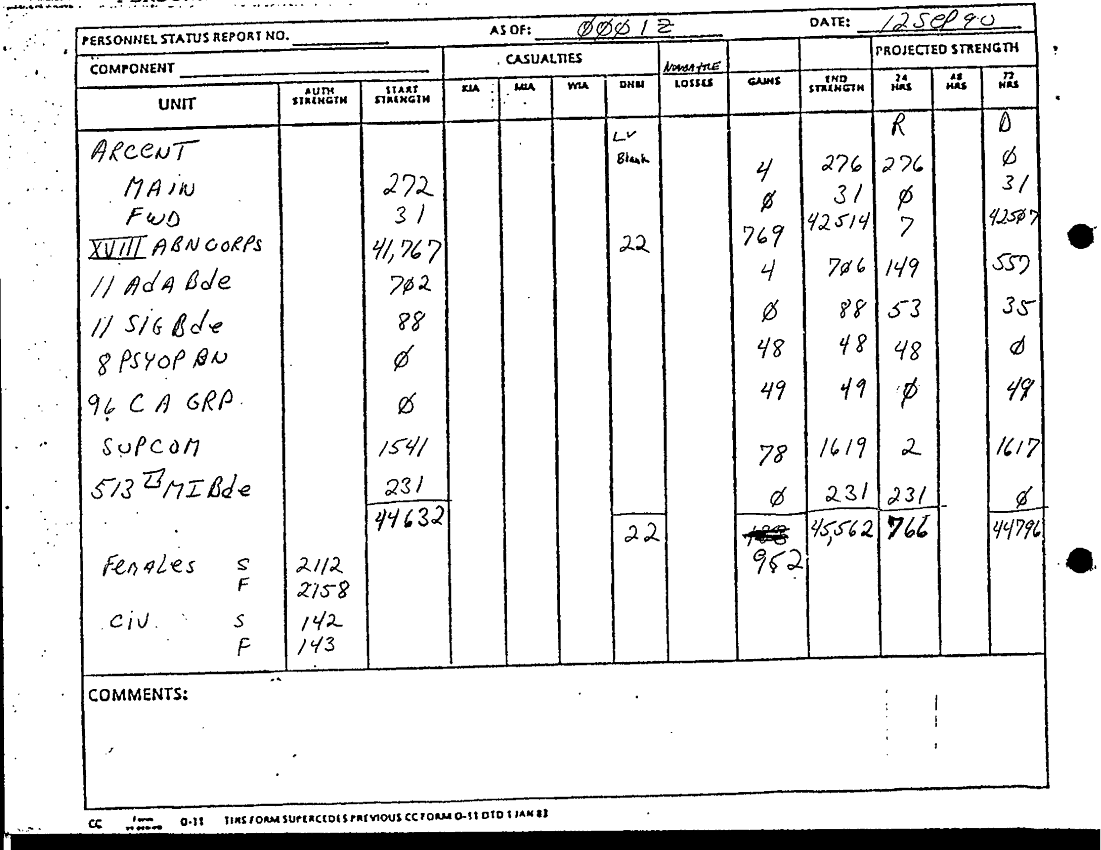 PERSONNEL STATUS REPORT NO. AS OF: ØØØ1Z DATE: 12 SEP 90
COMPONENT CASUALTIES PROJECTED STRENGTH
UNIT AUTH STRENGTH START STRENGTH KIA MIA WIA DNBI LOSSES GAINS END STRENGTH 24 HRS 48 HRS 72 HRS
R D
ARCENT Lv Blank
MAIN 272 4 276 276 Ø
FWD 31 Ø 31 Ø 31
XVIII ABN CORPS 41,767 22 769 42514 7 425Ø7
11 AdA Bde 7Ø2 4 7Ø6 149 557
11 SIG Bde 88 Ø 88 53 35
8 PSYOP BN Ø 48 48 48 Ø
96 CA GRP. Ø 49 49 Ø 49
SUPCOM 1541 78 1619 2 1617
513 MI Bde 231 Ø 231 231 Ø
44632 22 952 45,562 766 44796
Females S 2112
F 2158
Civ. S 142
F 143
COMMENTS:
CC Form O-11 THIS FORM SUPERCEDES PREVIOUS CC FORM O-11 DTD 1 JAN 83